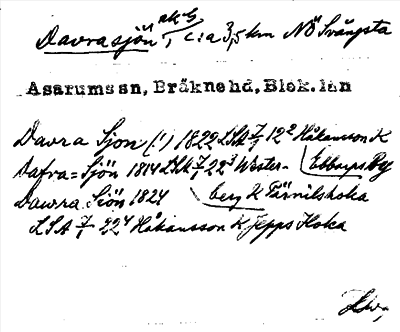 Davrasjön, sk. G
c:a 3,5 km NÖ Svängsta
Asarums sn, Bräkne hd, Blek. län
Davra Sjon (!) 1822 LSA 7/1 12² Håkansson K
Dafra=Sjön 1814 LSA 7/1 22³ Wester- Ebbarps By
Dawra Siön 1824 berg K Tärnilshoka
LSA 7/1 22⁴ Håkansson K Jepps Hoka